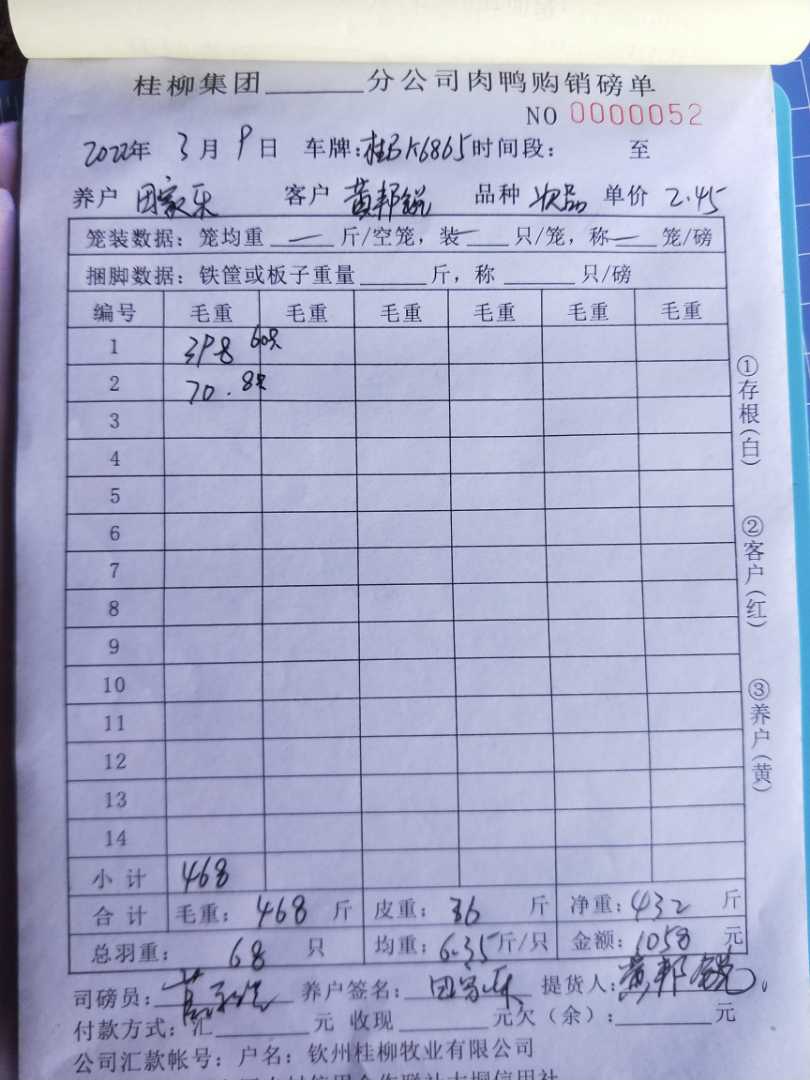 桂柳集团______分公司肉鸭购销磅单
NO 0000052
2022年 3月 9日 车牌:桂BK6865 时间段: 至
养户 田家乐 客户 黄邦锐 品种 次品 单价 2.45
笼装数据: 笼均重 — 斤/空笼, 装 — 只/笼, 称 — 笼/磅
捆脚数据: 铁筐或板子重量______斤, 称______只/磅
编号 毛重 毛重 毛重 毛重 毛重 毛重
1 398 60只
2 70. 8只
3
4
5
6
7
8
9
10
11
12
13
14
小计 468
合计 毛重: 468 斤 皮重: 36 斤 净重: 432 斤
总羽重: 68 只 均重: 6.35斤/只 金额: 1058 元
司磅员: 养户签名: 田家乐 提货人: 黄邦锐
付款方式: 汇______元 收现______元欠(余):______元
公司汇款帐号: 户名: 钦州桂柳牧业有限公司
①存根(白)
②客户(红)
③养户(黄)